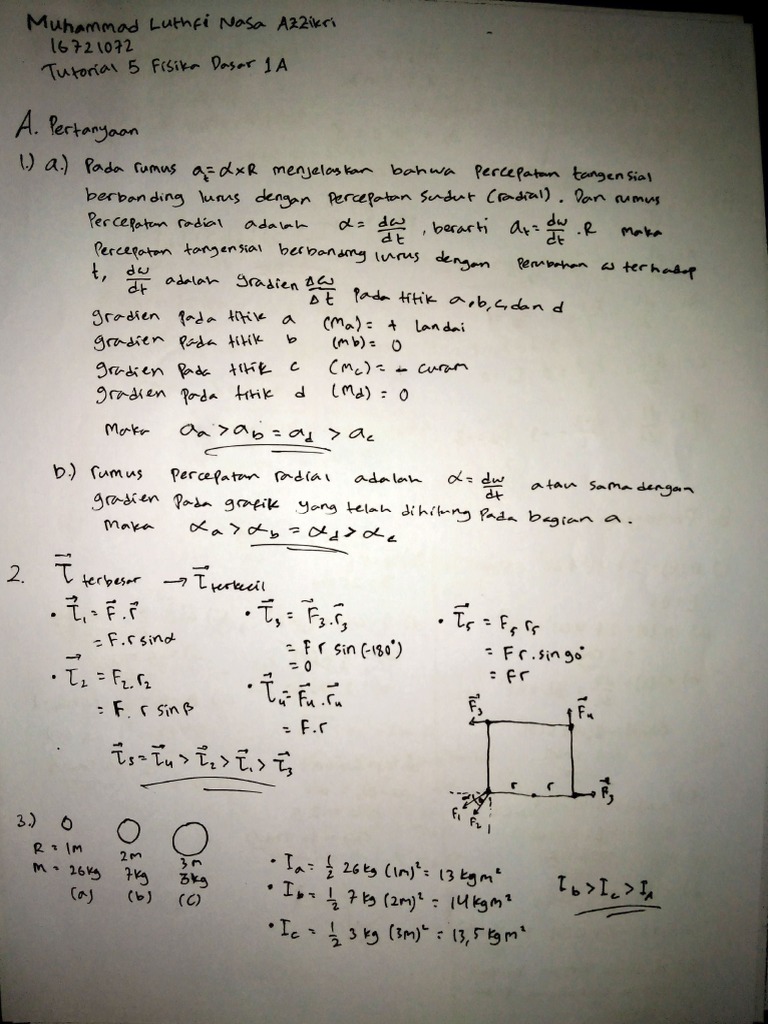 Muhammad Luthfi Nasa Azzikri
16721072
Tutorial 5 Fisika Dasar 1A
A. Pertanyaan
1.) a.) Pada rumus a_t = α × R menjelaskan bahwa percepatan tangensial
berbanding lurus dengan percepatan sudut (radial). Dan rumus
Percepatan radial adalah α = dω/dt , berarti a_t = dω/dt . R maka
Percepatan tangensial berbanding lurus dengan perubahan ω terhadap
t, dω/dt adalah gradien Δω/Δt pada titik a, b, c, dan d
gradien pada titik a (Ma) = + landai
gradien pada titik b (mb) = 0
gradien pada titik c (Mc) = - curam
gradien pada titik d (Md) = 0
Maka a_a > a_b = a_d > a_c
b.) rumus percepatan radial adalah α = dω/dt atau sama dengan
gradien pada grafik yang telah dihitung pada bagian a.
Maka α_a > α_b = α_d > α_c
2. τ⃗ terbesar → τ⃗ terkecil
• τ⃗₁ = F⃗ . r⃗
= F. r sin α
• τ⃗₂ = F₂ . r₂
= F. r sin β
• τ⃗₃ = F⃗₃ . r⃗₃
= F r sin (-180°)
= 0
• τ⃗₄ = F⃗₄ . r⃗₄
= F. r
• τ⃗₅ = F₅ r₅
= F r . sin 90°
= Fr
τ⃗₅ = τ⃗₄ > τ⃗₂ > τ⃗₁ > τ⃗₃
F⃗₃ F⃗₄
r r
F₁ F₂
3.)
R = 1m 2m 3m
M = 26kg 7kg 3kg
(a) (b) (c)
• I_a = 1/2 26 kg (1m)² = 13 kgm²
• I_b = 1/2 7 kg (2m)² = 14 kgm²
• I_c = 1/2 3 kg (3m)² = 13,5 kgm²
I_b > I_c > I_A